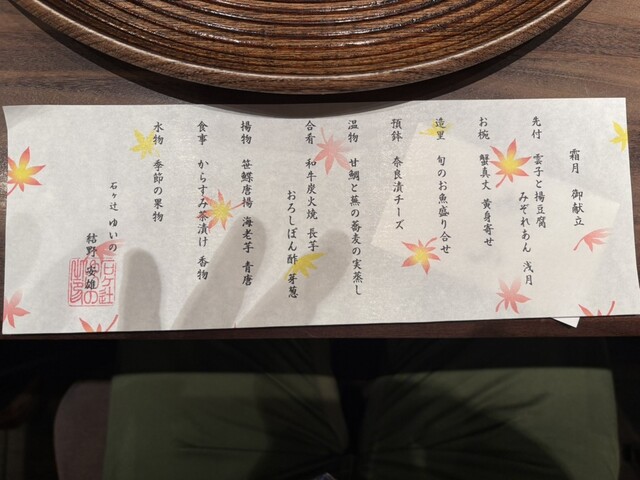 霜月　御献立
先付　雲子と揚豆腐
みぞれあん　浅月
お椀　蟹真丈　黄身寄せ
造里　旬のお魚盛り合せ
預鉢　奈良漬チーズ
温物　甘鯛と蕪の蕎麦の実蒸し
合肴　和牛炭火焼　長芋
おろしぽん酢　芽葱
揚物　笹鰈唐揚　海老芋　青唐
食事　からすみ茶漬け　香物
水物　季節の果物
石ヶ辻　ゆいの
結野　安雄